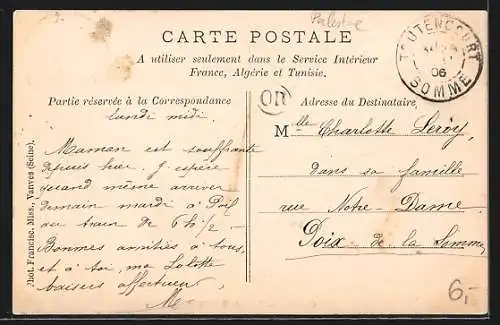 Palestine
CARTE POSTALE
A utiliser seulement dans le Service Intérieur
France, Algérie et Tunisie.
TOUTENCOURT
06
SOMME
OR
Partie réservée à la Correspondance
Adresse du Destinataire
lundi midi.
Maman est souffrante
depuis hier. J'espère
quand même arriver
demain mardi à
au train de 6h 1/2 -
Bonnes amitiés à tous,
et à toi, ma Lolotte
baisers affectueux
M
Mlle Charlotte Leroy,
dans sa famille
rue Notre-Dame
Poix de la Somme
Phot. Francisc. Miss., Vanves (Seine).
6,-